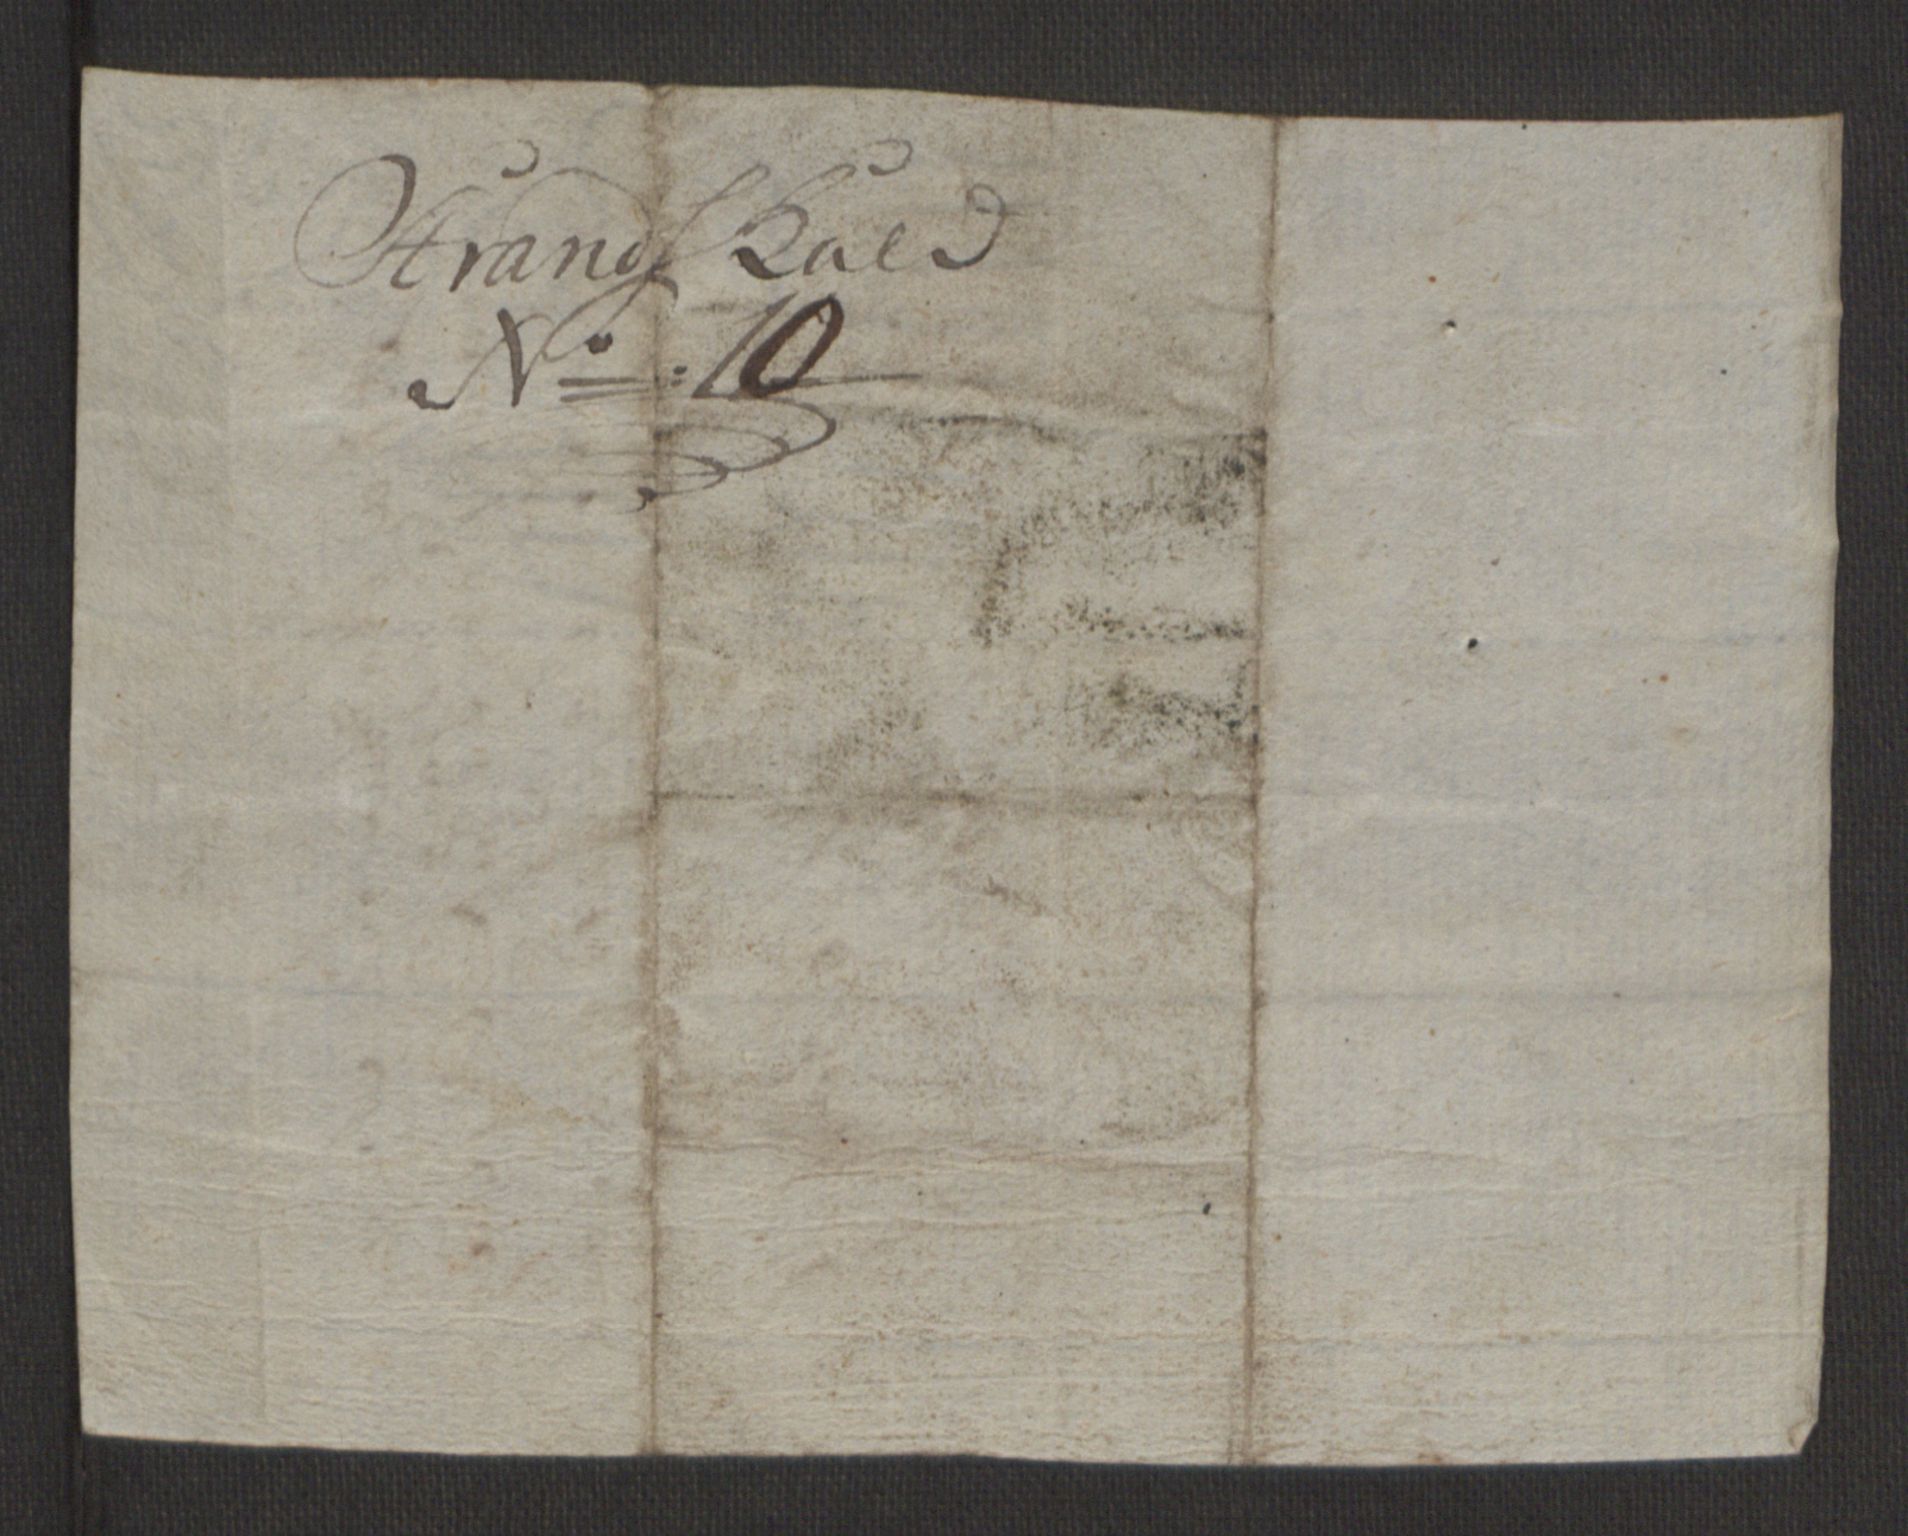 Strands Kald
No: 10